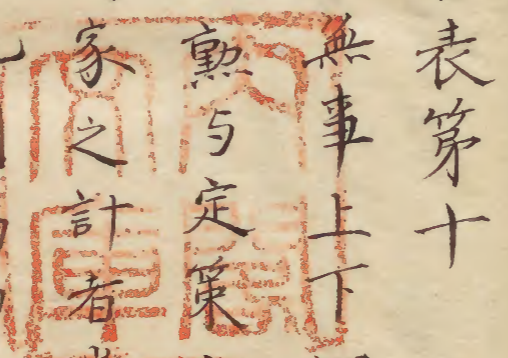 表第十
無事上下
勲与定策
家之計者